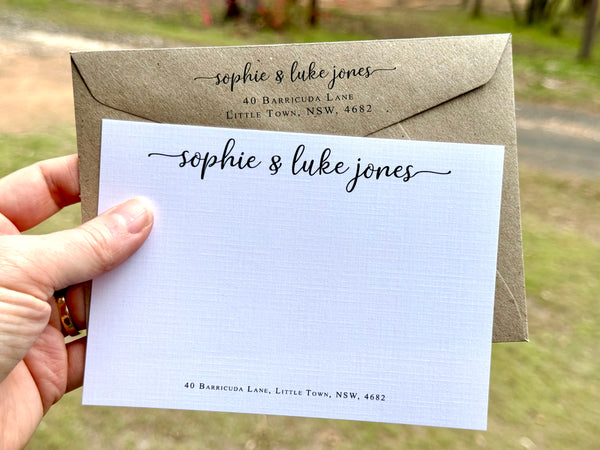 sophie & luke jones
40 Barricuda Lane
Little Town, NSW, 4682
sophie & luke jones
40 Barricuda Lane, Little Town, NSW, 4682